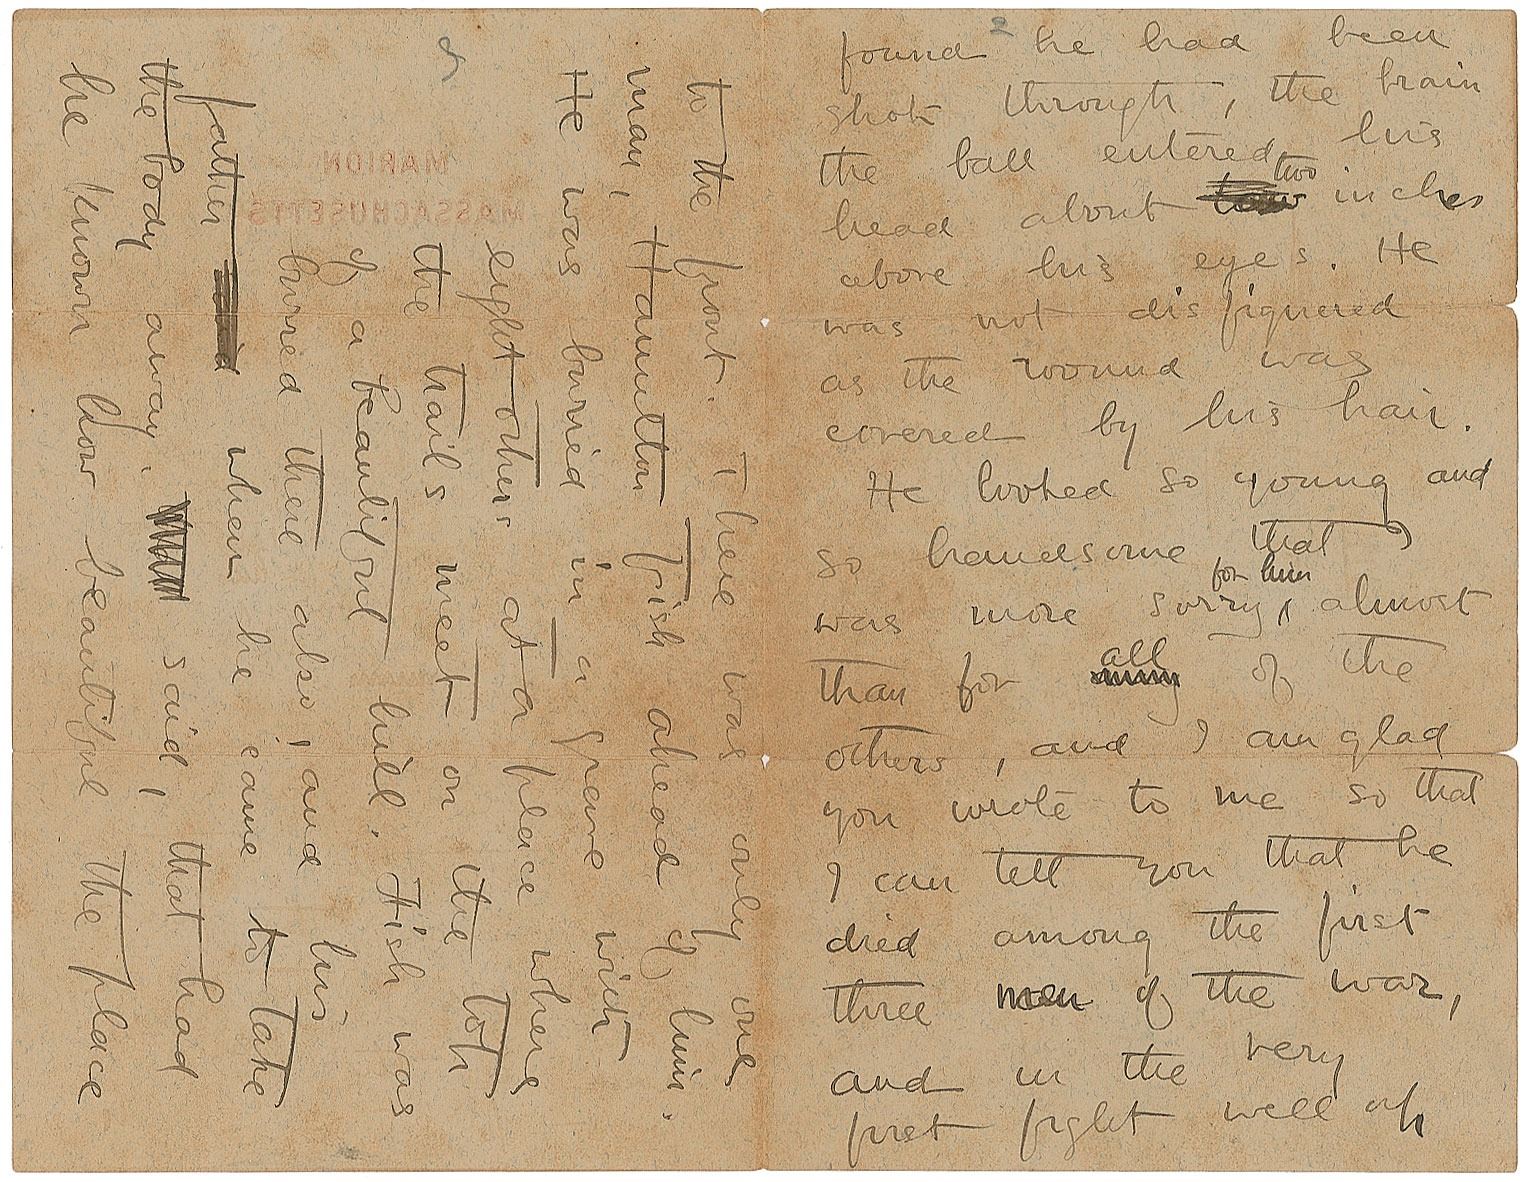 2
found he had been
shot through, the brain
the ball entered his
head about two inches
above his eyes. He
was not disfigured
as the wound was
covered by his hair.
He looked so young and
so handsome that I
was more sorry for him, almost
than for all of the
others, and I am glad
you wrote to me so that
I can tell you that he
died among the first
three men of the war,
and in the very
first fight well up
to the front. There was only one
man, Hamilton Fish ahead of him.
He was buried in a grave with
eight others at a place where
the trails meet on the top
of a beautiful hill. Fish was
burred there also, and his
father when he came to take
the body away. said, that had
he known how beautiful the place
MARION
MASSACHUSETTS